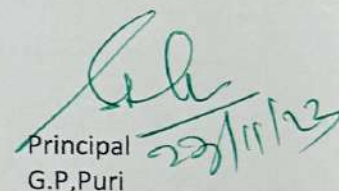 23/11/23
Principal
G.P,Puri